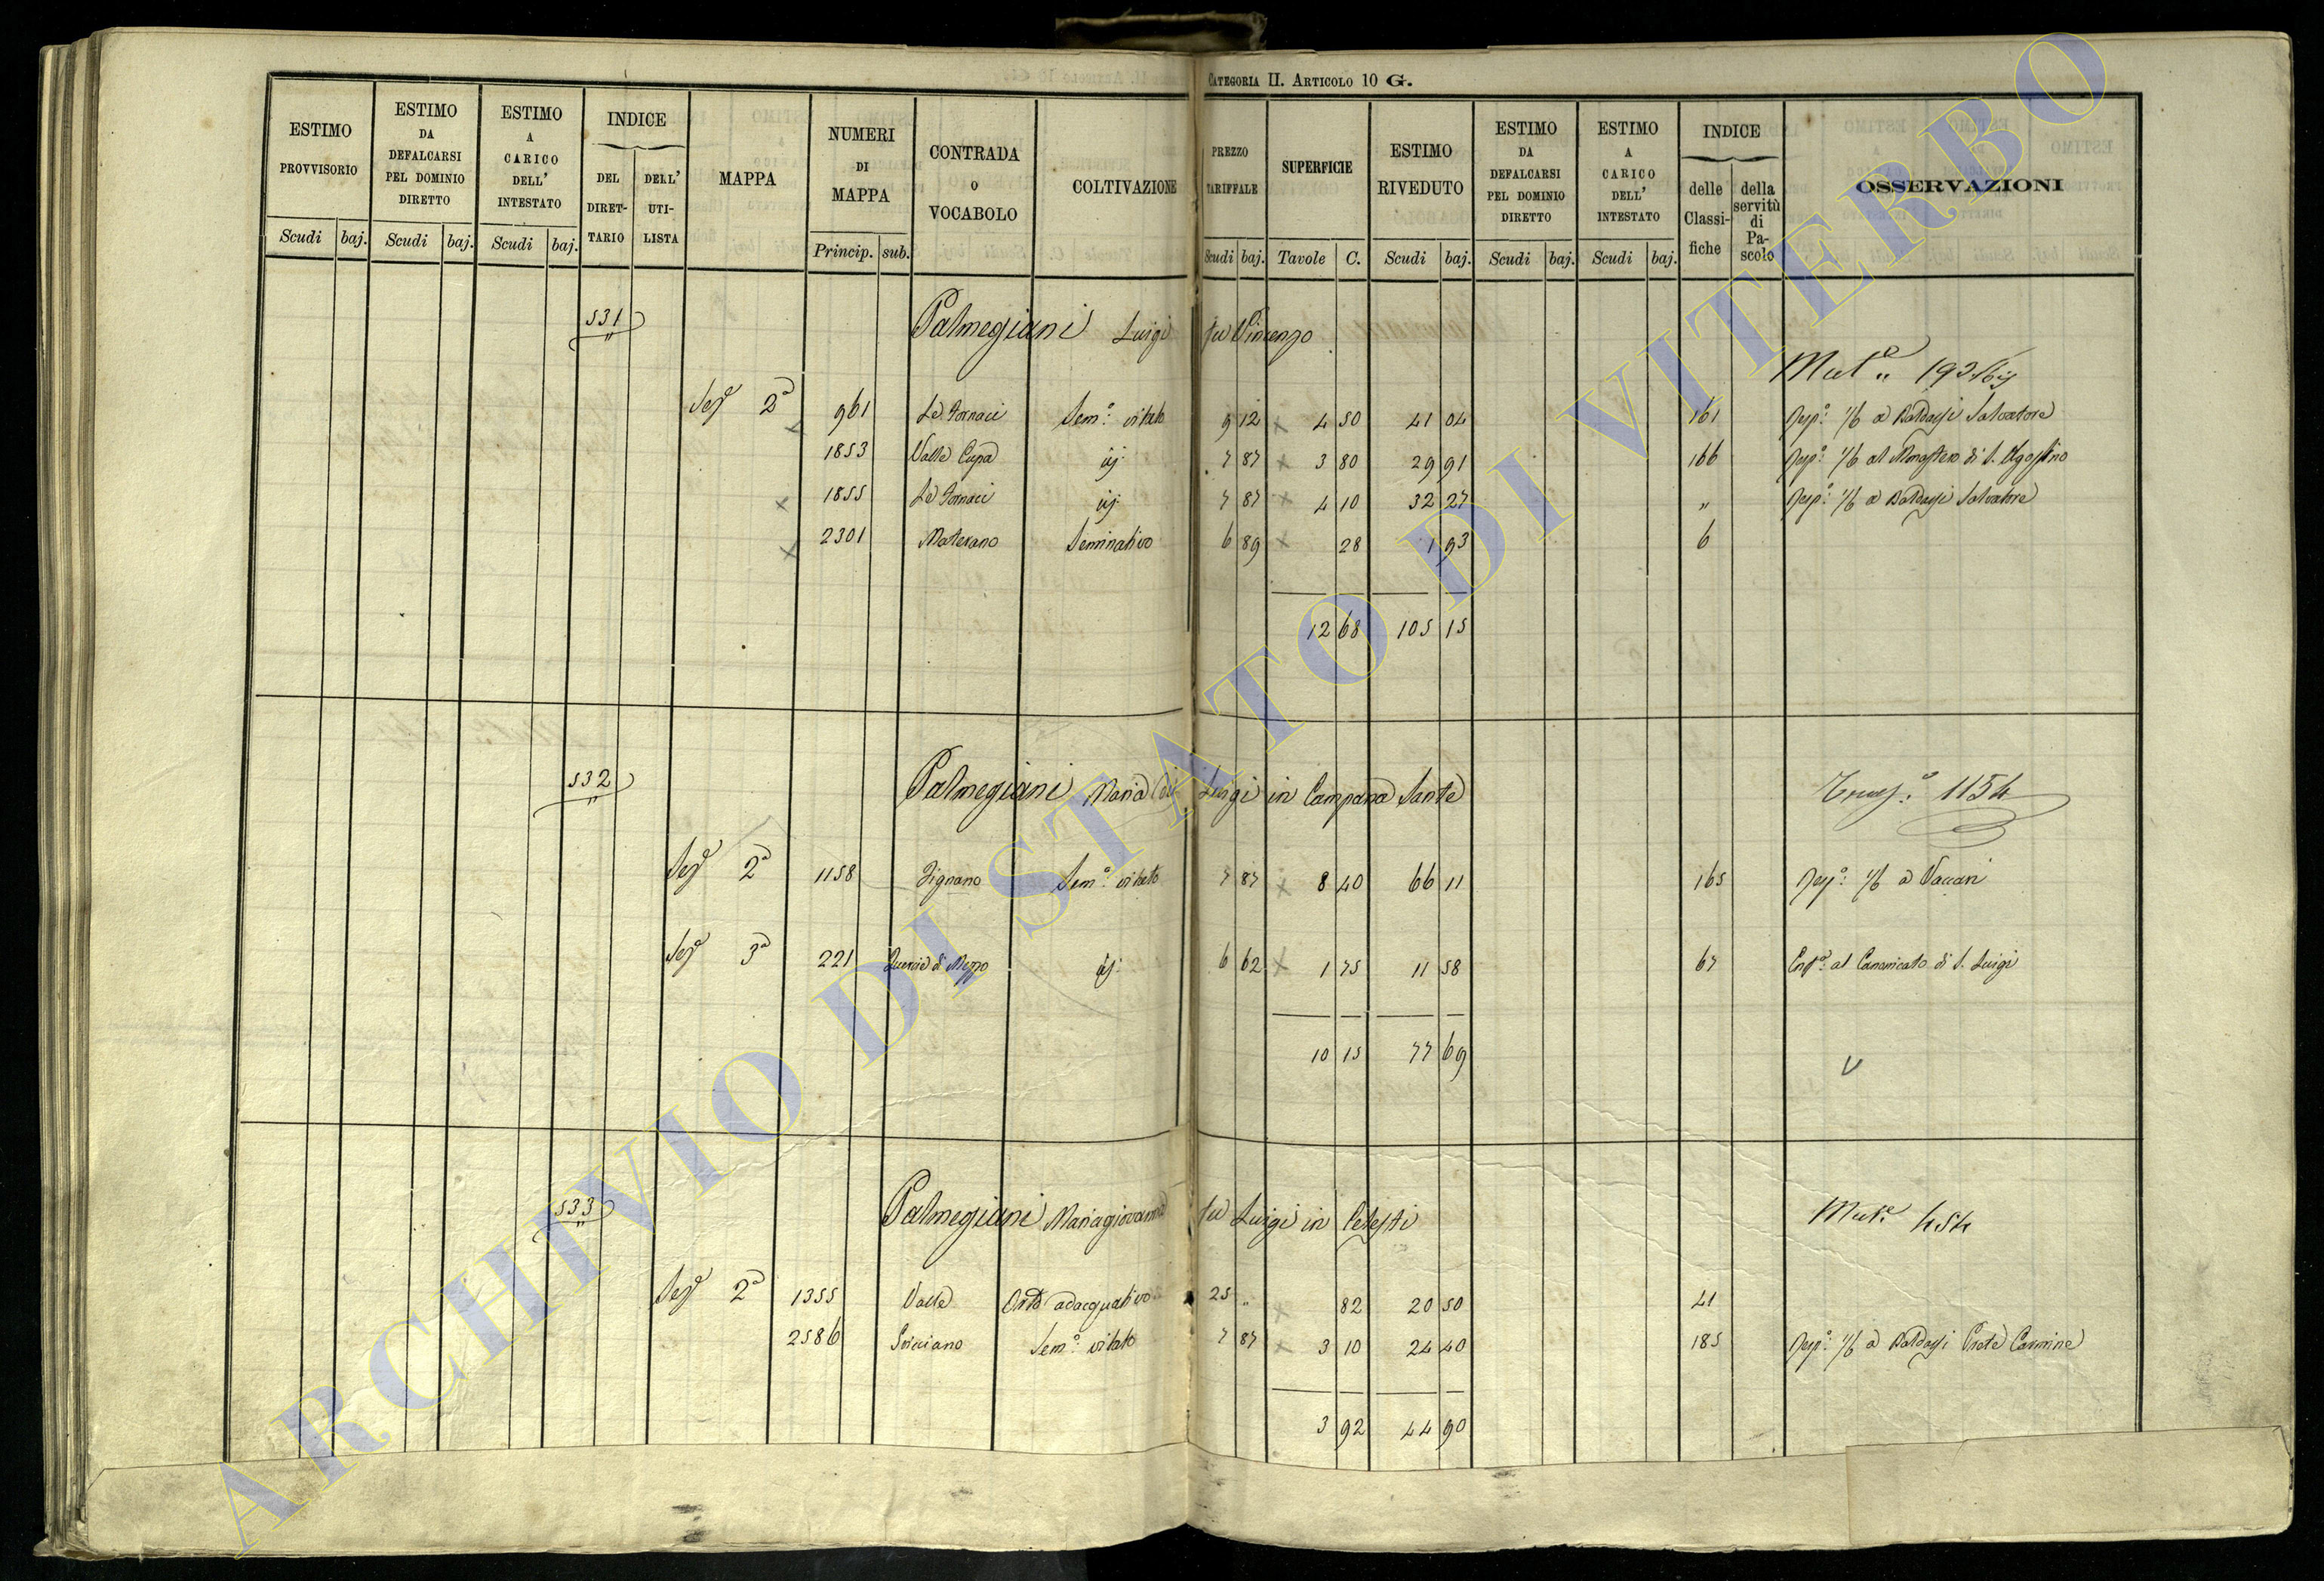 CATEGORIA II. ARTICOLO 10 G.
ESTIMO PROVVISORIO
Scudi baj.
ESTIMO DA DEFALCARSI PEL DOMINIO DIRETTO
Scudi baj.
ESTIMO A CARICO DELL' INTESTATO
Scudi baj.
INDICE
DEL DIRET-TARIO
DELL' UTI-LISTA
MAPPA
NUMERI DI MAPPA
Princip. sub.
CONTRADA O VOCABOLO
COLTIVAZIONE
PREZZO TARIFFALE
Scudi baj.
SUPERFICIE
Tavole C.
ESTIMO RIVEDUTO
Scudi baj.
ESTIMO DA DEFALCARSI PEL DOMINIO DIRETTO
Scudi baj.
ESTIMO A CARICO DELL' INTESTATO
Scudi baj.
INDICE
delle Classi-fiche
della servitù di Pa-scolo
OSSERVAZIONI
531 Palmegiani Luigi fu Vincenzo
Mut.e
Sez.e 2a 961 Le Fornaci Sem.o vitato 9 12 4 50 41 04 161 Resp.o 1/6 a Baldassi Salvatore
1853 Valle Cupa id. 7 87 3 80 29 91 166 Resp.o 1/6 al Monastero di S. Agostino
1855 Le Fornaci id. 7 87 4 10 32 27 " Resp.o 1/6 a Baldassi Salvatore
2301 Materano Seminativo 6 89 28 1 93 6
12 68 105 15
532 Palmegiani Maria di Luigi in Campana Sante
1154
Sez.e 2a 1158 Zignano Sem.o vitato 7 87 8 40 66 11 165 Resp.o 1/6 a Vaccari
Sez.e 3a 221 Quercie di Mezzo id. 6 62 1 75 11 58 67 al Canonicato di S. Luigi
10 15 77 69
533 Palmegiani Mariagiovanna fu Luigi in Celesti
Mut.e 454
Sez.e 2a 1355 Valle Orto adacquativo 25 " 82 20 50 41
2586 Sem.o vitato 7 87 3 10 24 40 185 Resp.o 1/6 a Baldassi Carmine
3 92 44 90
ARCHIVIO DI STATO DI VITERBO